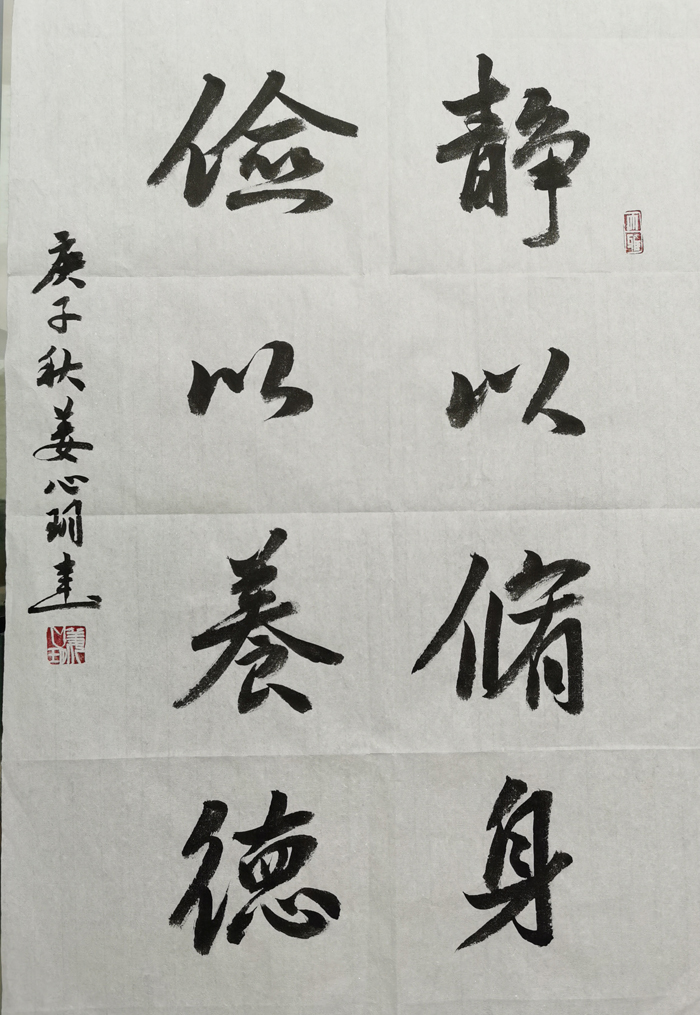 静以脩身
儉以養德
庚子秋姜心玥書